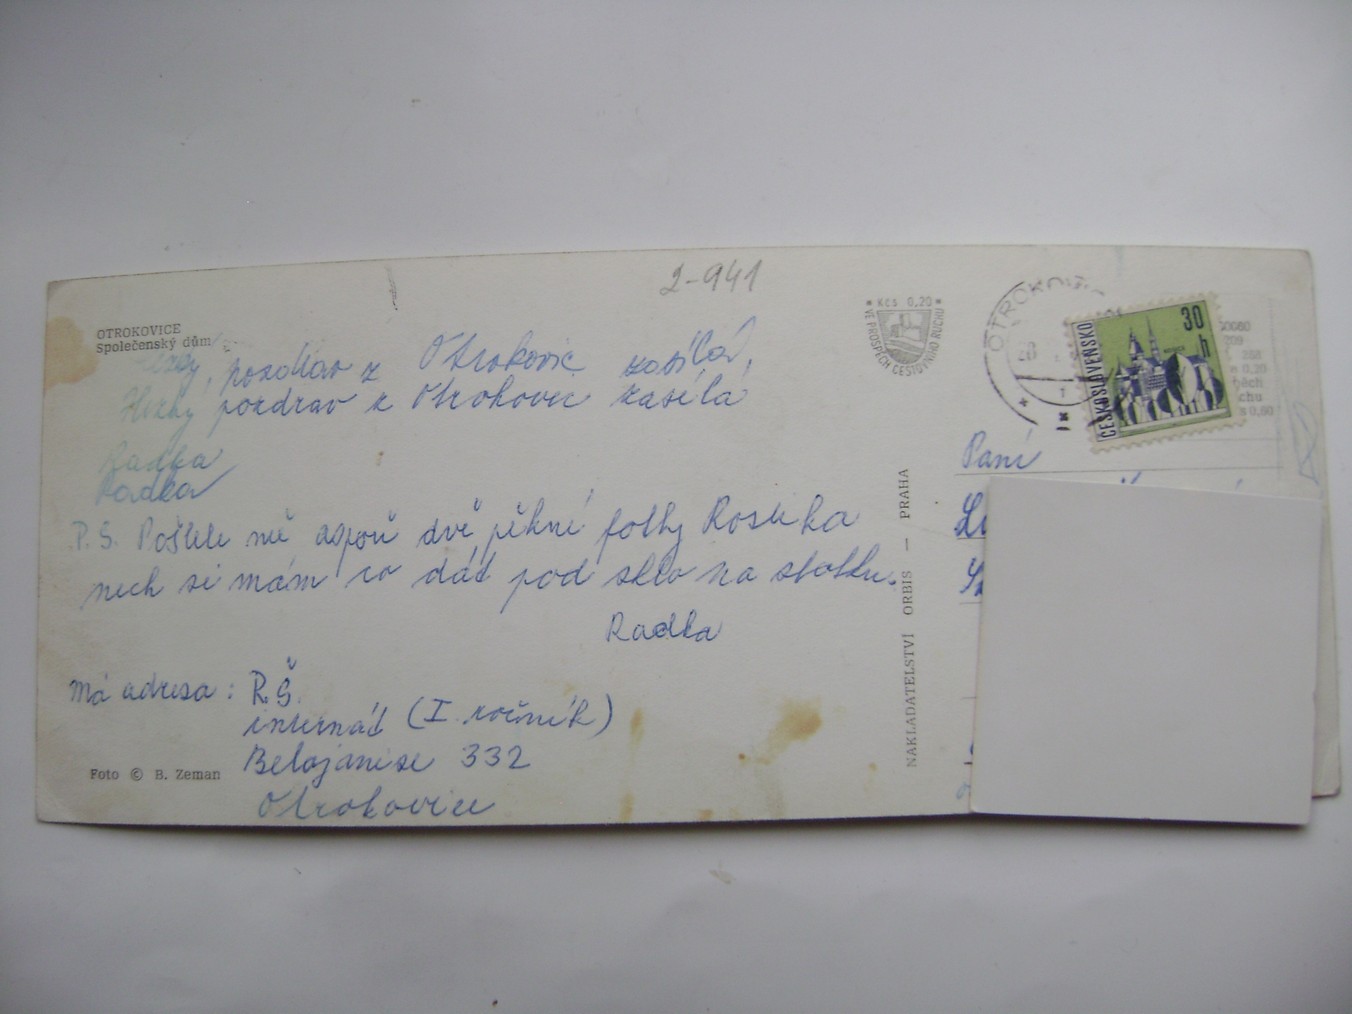 2-941
OTROKOVICE
Společenský dům
pozdrav z Otrokovic zasílá,
Hezký pozdrav z Otrokovic zasílá
Radka
Radka
P.S. Pošlete mě aspoň dvě pěkné fotky
nech si mám co dát pod sklo na stolku.
Radka
Má adresa: R.Š.
internát (I. ročník)
Belojanise 332
Otrokovice
Foto © B. Zeman
NAKLADATELSTVÍ ORBIS — PRAHA
* Kčs 0,20 *
VE PROSPĚCH CESTOVNÍHO RUCHU
OTROKOVI
ČESKOSLOVENSKO
30
h
n 0,20
chu
s 0,60
Paní